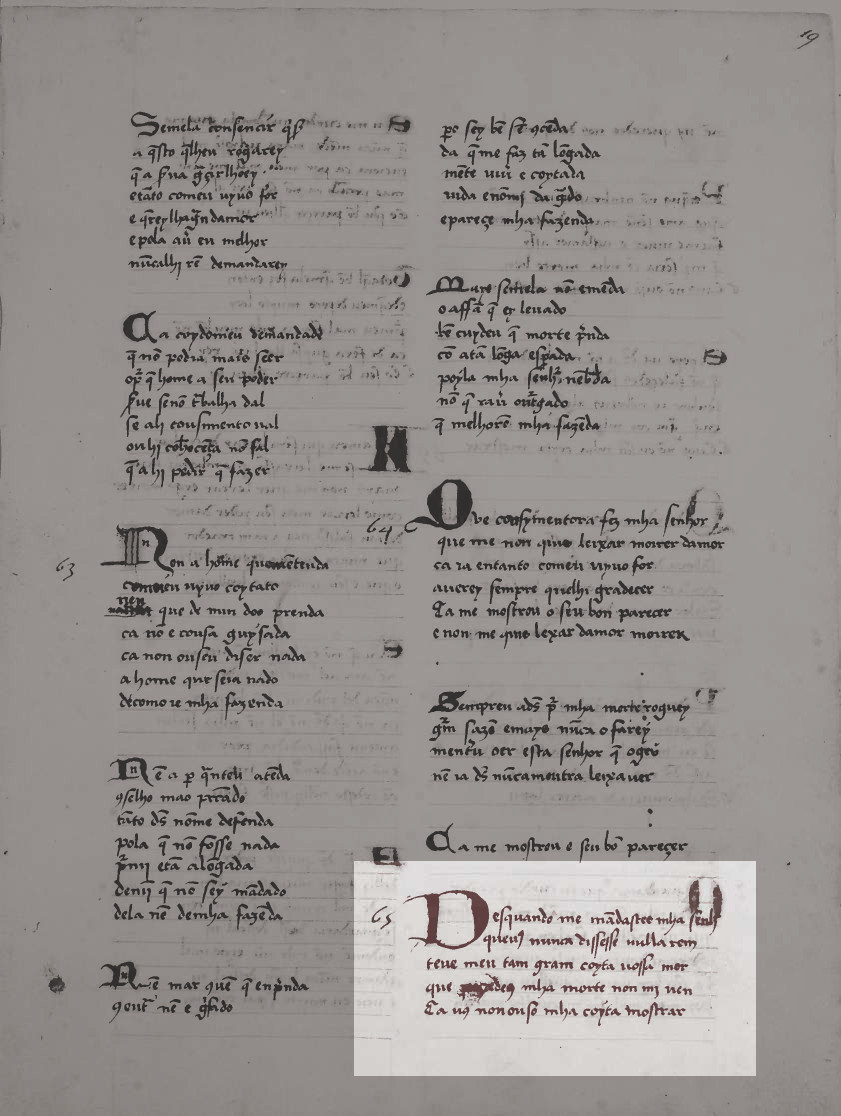 19
Semela consencir q̃s
a q̃sto q̃lheu rogarey
q̃ a sua g̃çirlhoey
etãto comeu vyvo for
e q̃reylhag̃ndamor
epola av̄ eu melhor
nũcalhi rē demandarey
Ca coydomeu demandade
q̃ nõ podia mais seer
op̃ q̃ home a seu poder
sue senõ t̃balha dal
se ali cousimento val
ouhi conhoceña nõ fal
q̃ a hi podir q̃ fazer
63
Non a home queme entenda
comeu vyvo coytato
nen que de min doo prenda
ca nõ e cousa guysada
ca non ouseu diser nada
a home que seia nado
decomo ie mha fazenda
Nē a p q̃nteu atēda
9selho mao prcado
tãto ds̃ nome defenda
pola q̃ nõ fosse nada
p̃mi etã alõgada
demi q̃ nõ sey mãdado
dela nē demha fazēda
Nē mar quē q̃ enp̃nda
9out̃ nē e g̃sado
p̃o sey bē sē 9ceda
da q̃ me faz tã lõgada
mēte viũ e coytada
vida enõmi da g̃do
epareçe mha fazenda
Mays seu ela nõ emēda
o affã q̃ ey levado
bē cuydeu q̃ morte p̃nda
cõ atã lõga espada
poyla mha senh̃ nēbda
nõ q̃ rau out̃gado
q̃ melhorē mha fazēda
64
Ove consymentora fez mha senhor
que me non quis leixar morrer damor
ca ia entanto comeu vyvo for
averey sempre quelhi gradecer
Ca me mostrou o seu bon parecer
e non me quis lexar damor morrer
Sempreu ads̃ p̃ mha morte roguey
g̃m sazõ emays nũca o farey
mentr̃u veer esta senhor q̃ ogeu
nē ia ds̃ nũcamoutra leixa ver
Ca me mostrou o seu bõ pareçer
65
Desquando me mãdastes mha senh̃
queu9 nunca dissesse nulla rem
teve meu tam gram coyta vossa mor
que mha morte non mi ven
Ca vu9 nonouso mha coyta mostrar